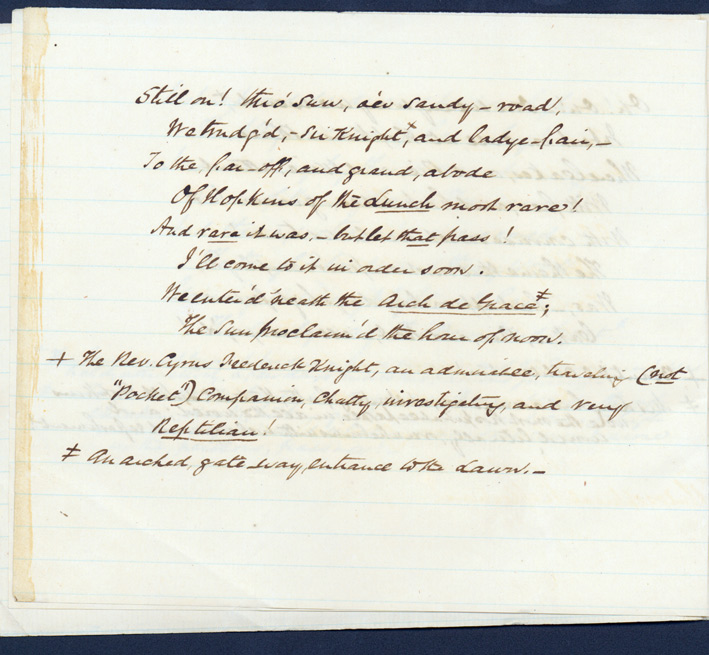 Still on! thro' Sun, o'er sandy-road,
We trudg'd,- Sir Knight,+ and Ladye-fair,-
To the far-off, and grand, abode
Of Hopkins of the Lunch most rare!
And rare it was,- but let that pass!
I'll come to it in order soon.
We enter'd 'neath the Arch de Grace‡,
The Sun proclaim'd the hour of noon.
+ The Rev. Cyrus Frederick Knight, an admirable, traveling (not
"Pocket") Companion, Chatty, investigating, and very
Reptilian!
‡ An arched, gate-way, entrance to the Lawn.-